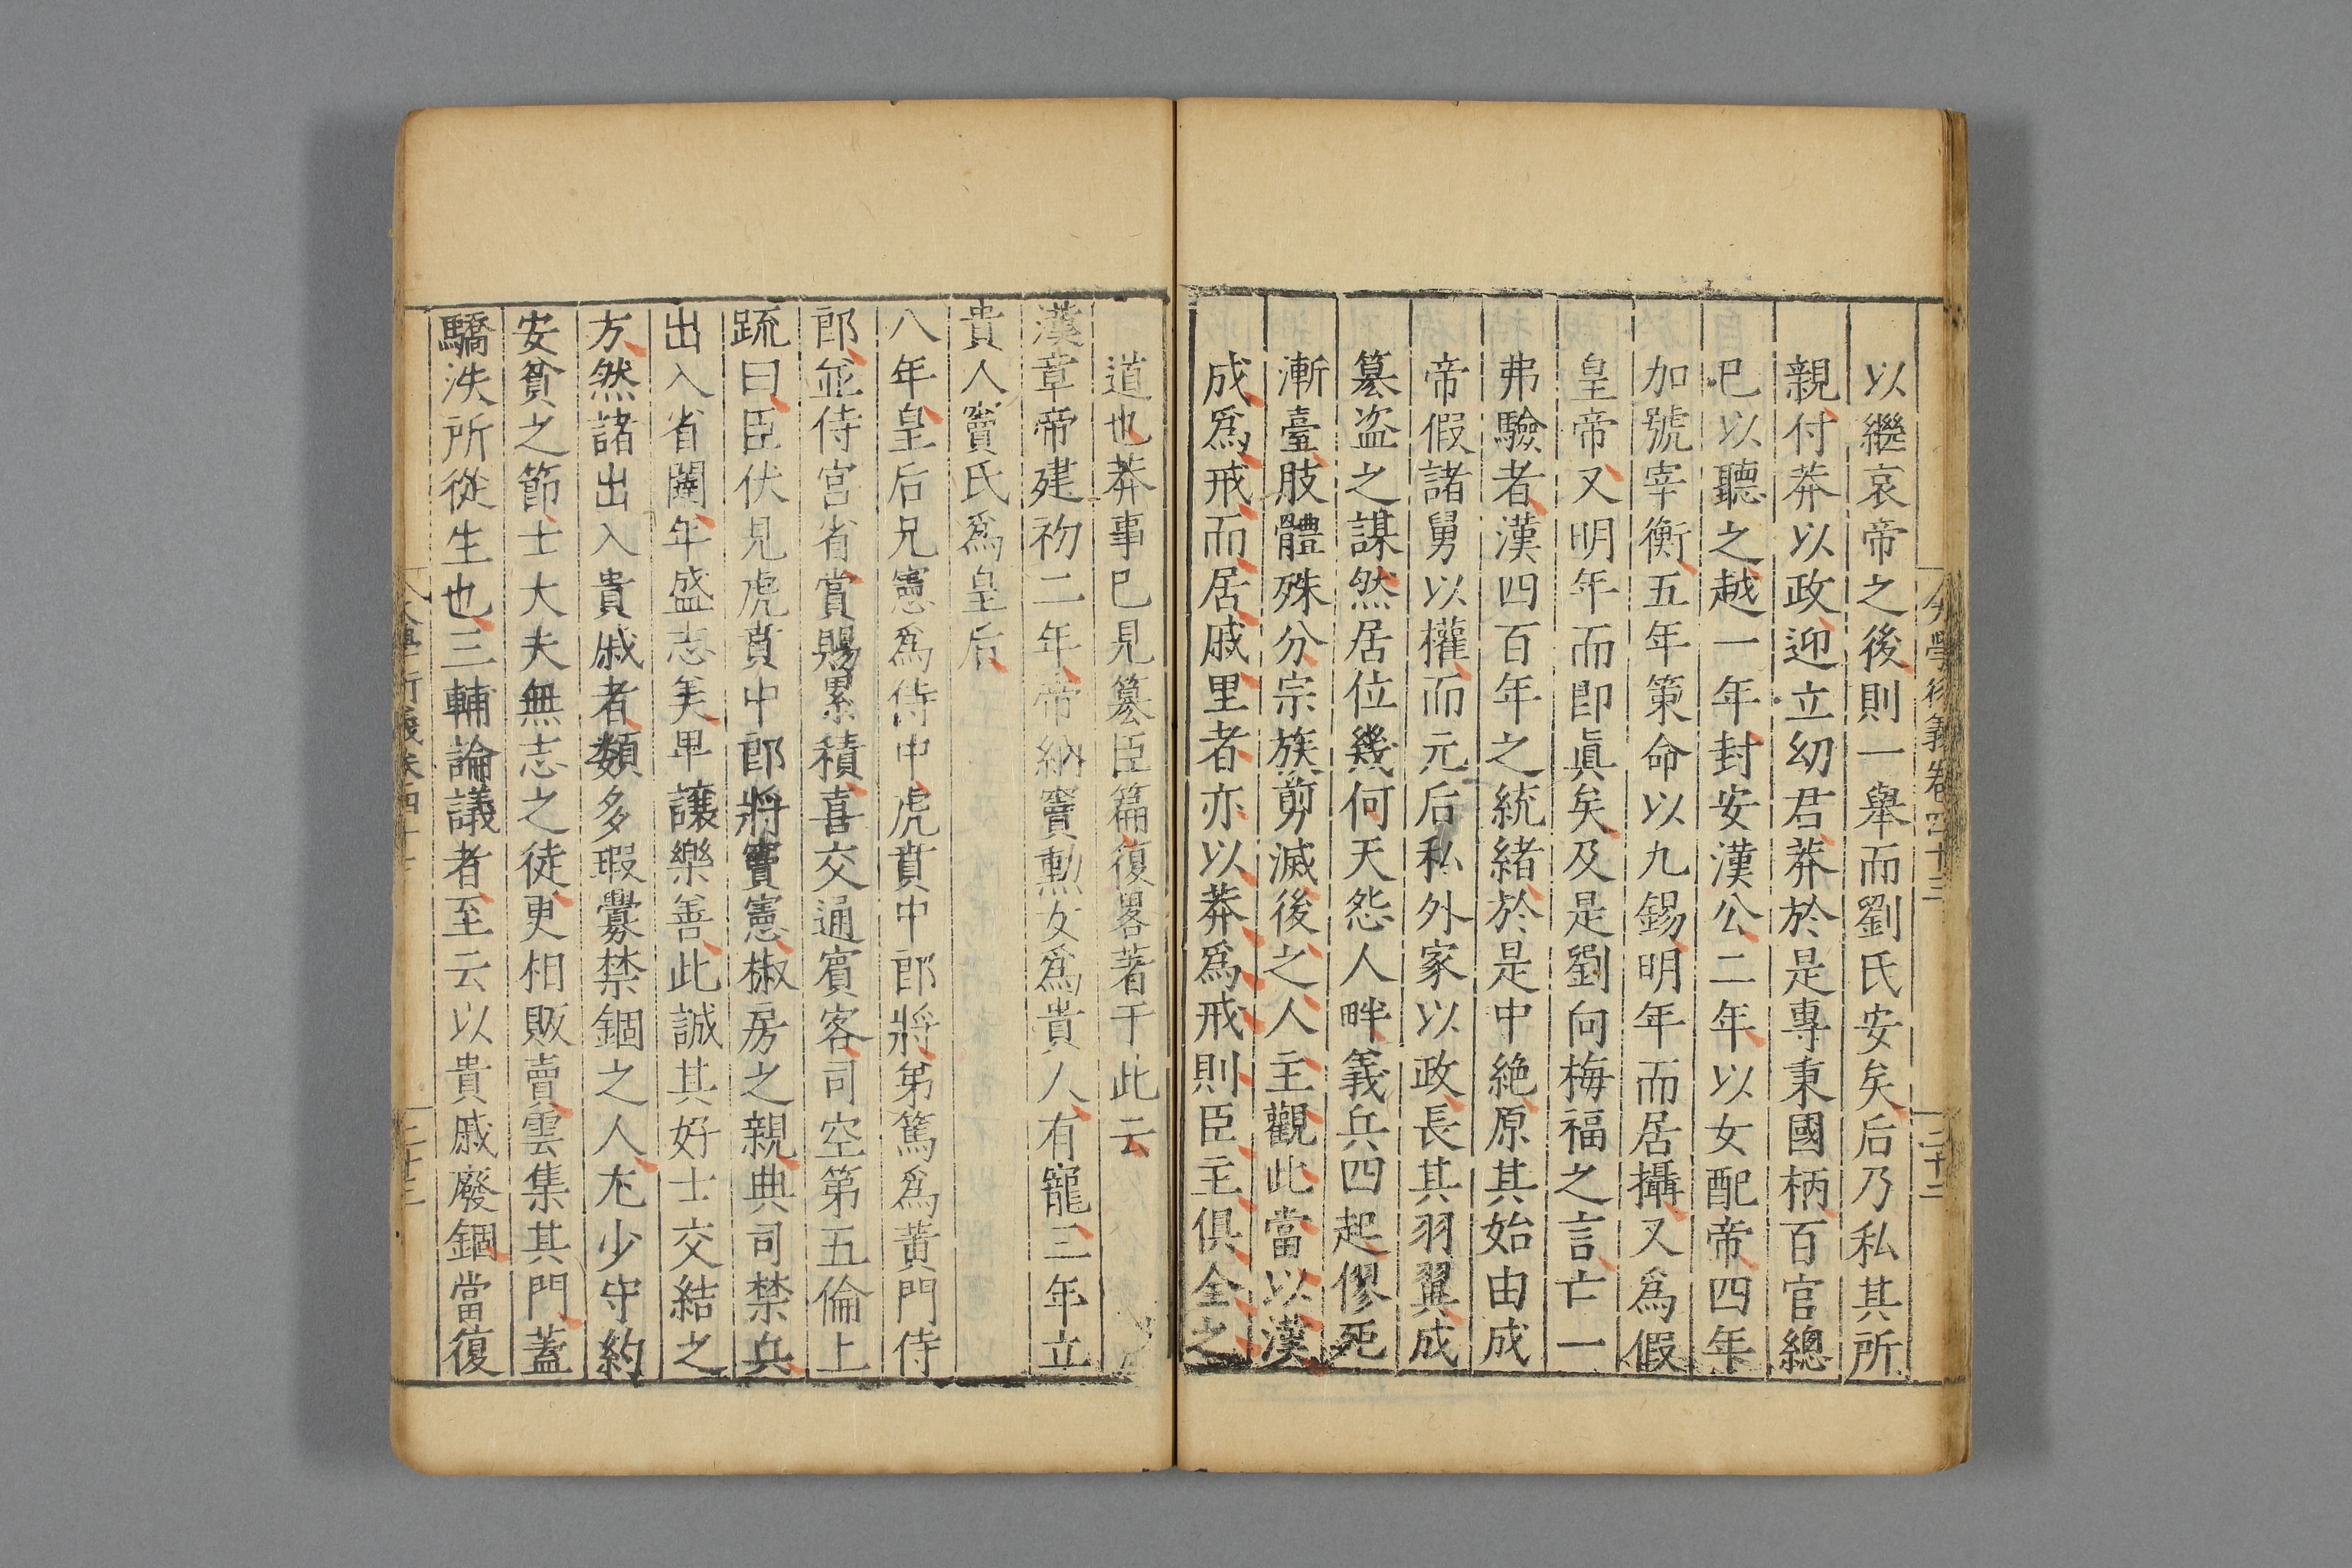 大學衍義卷四十三
二十二
以繼哀帝之後則一舉而劉氏安矣后乃私其所
親付莽以政迎立幼君莽於是專秉國柄百官總
已以聽之越一年封安漢公二年以女配帝四年
加號宰衡五年策命以九錫明年而居攝又爲假
皇帝又明年而即眞矣及是劉向梅福之言亡一
弗驗者漢四百年之統緒於是中絶原其始由成
帝假諸舅以權而元后私外家以政長其羽翼成
簒盗之謀然居位幾何天怨人畔義兵四起僇死
漸臺肢體殊分宗族剪滅後之人主觀此當以漢
成爲戒而居戚里者亦以莽爲戒則臣主俱全之
道也莽事已見簒臣篇復畧著于此云
漢章帝建初二年帝納竇勲女爲貴人有寵三年立
貴人竇氏爲皇后
八年皇后兄憲爲侍中虎賁中郎將弟篤爲黃門侍
郎並侍宮省賞賜累積喜交通賓客司空第五倫上
疏曰臣伏見虎賁中郎將竇憲椒房之親典司禁兵
出入省闥年盛志美卑讓樂善此誠其好士交結之
方然諸出入貴戚者類多瑕釁禁錮之人尤少守約
安貧之節士大夫無志之徒更相販賣雲集其門蓋
驕泆所從生也三輔論議者至云以貴戚廢錮當復
二十三